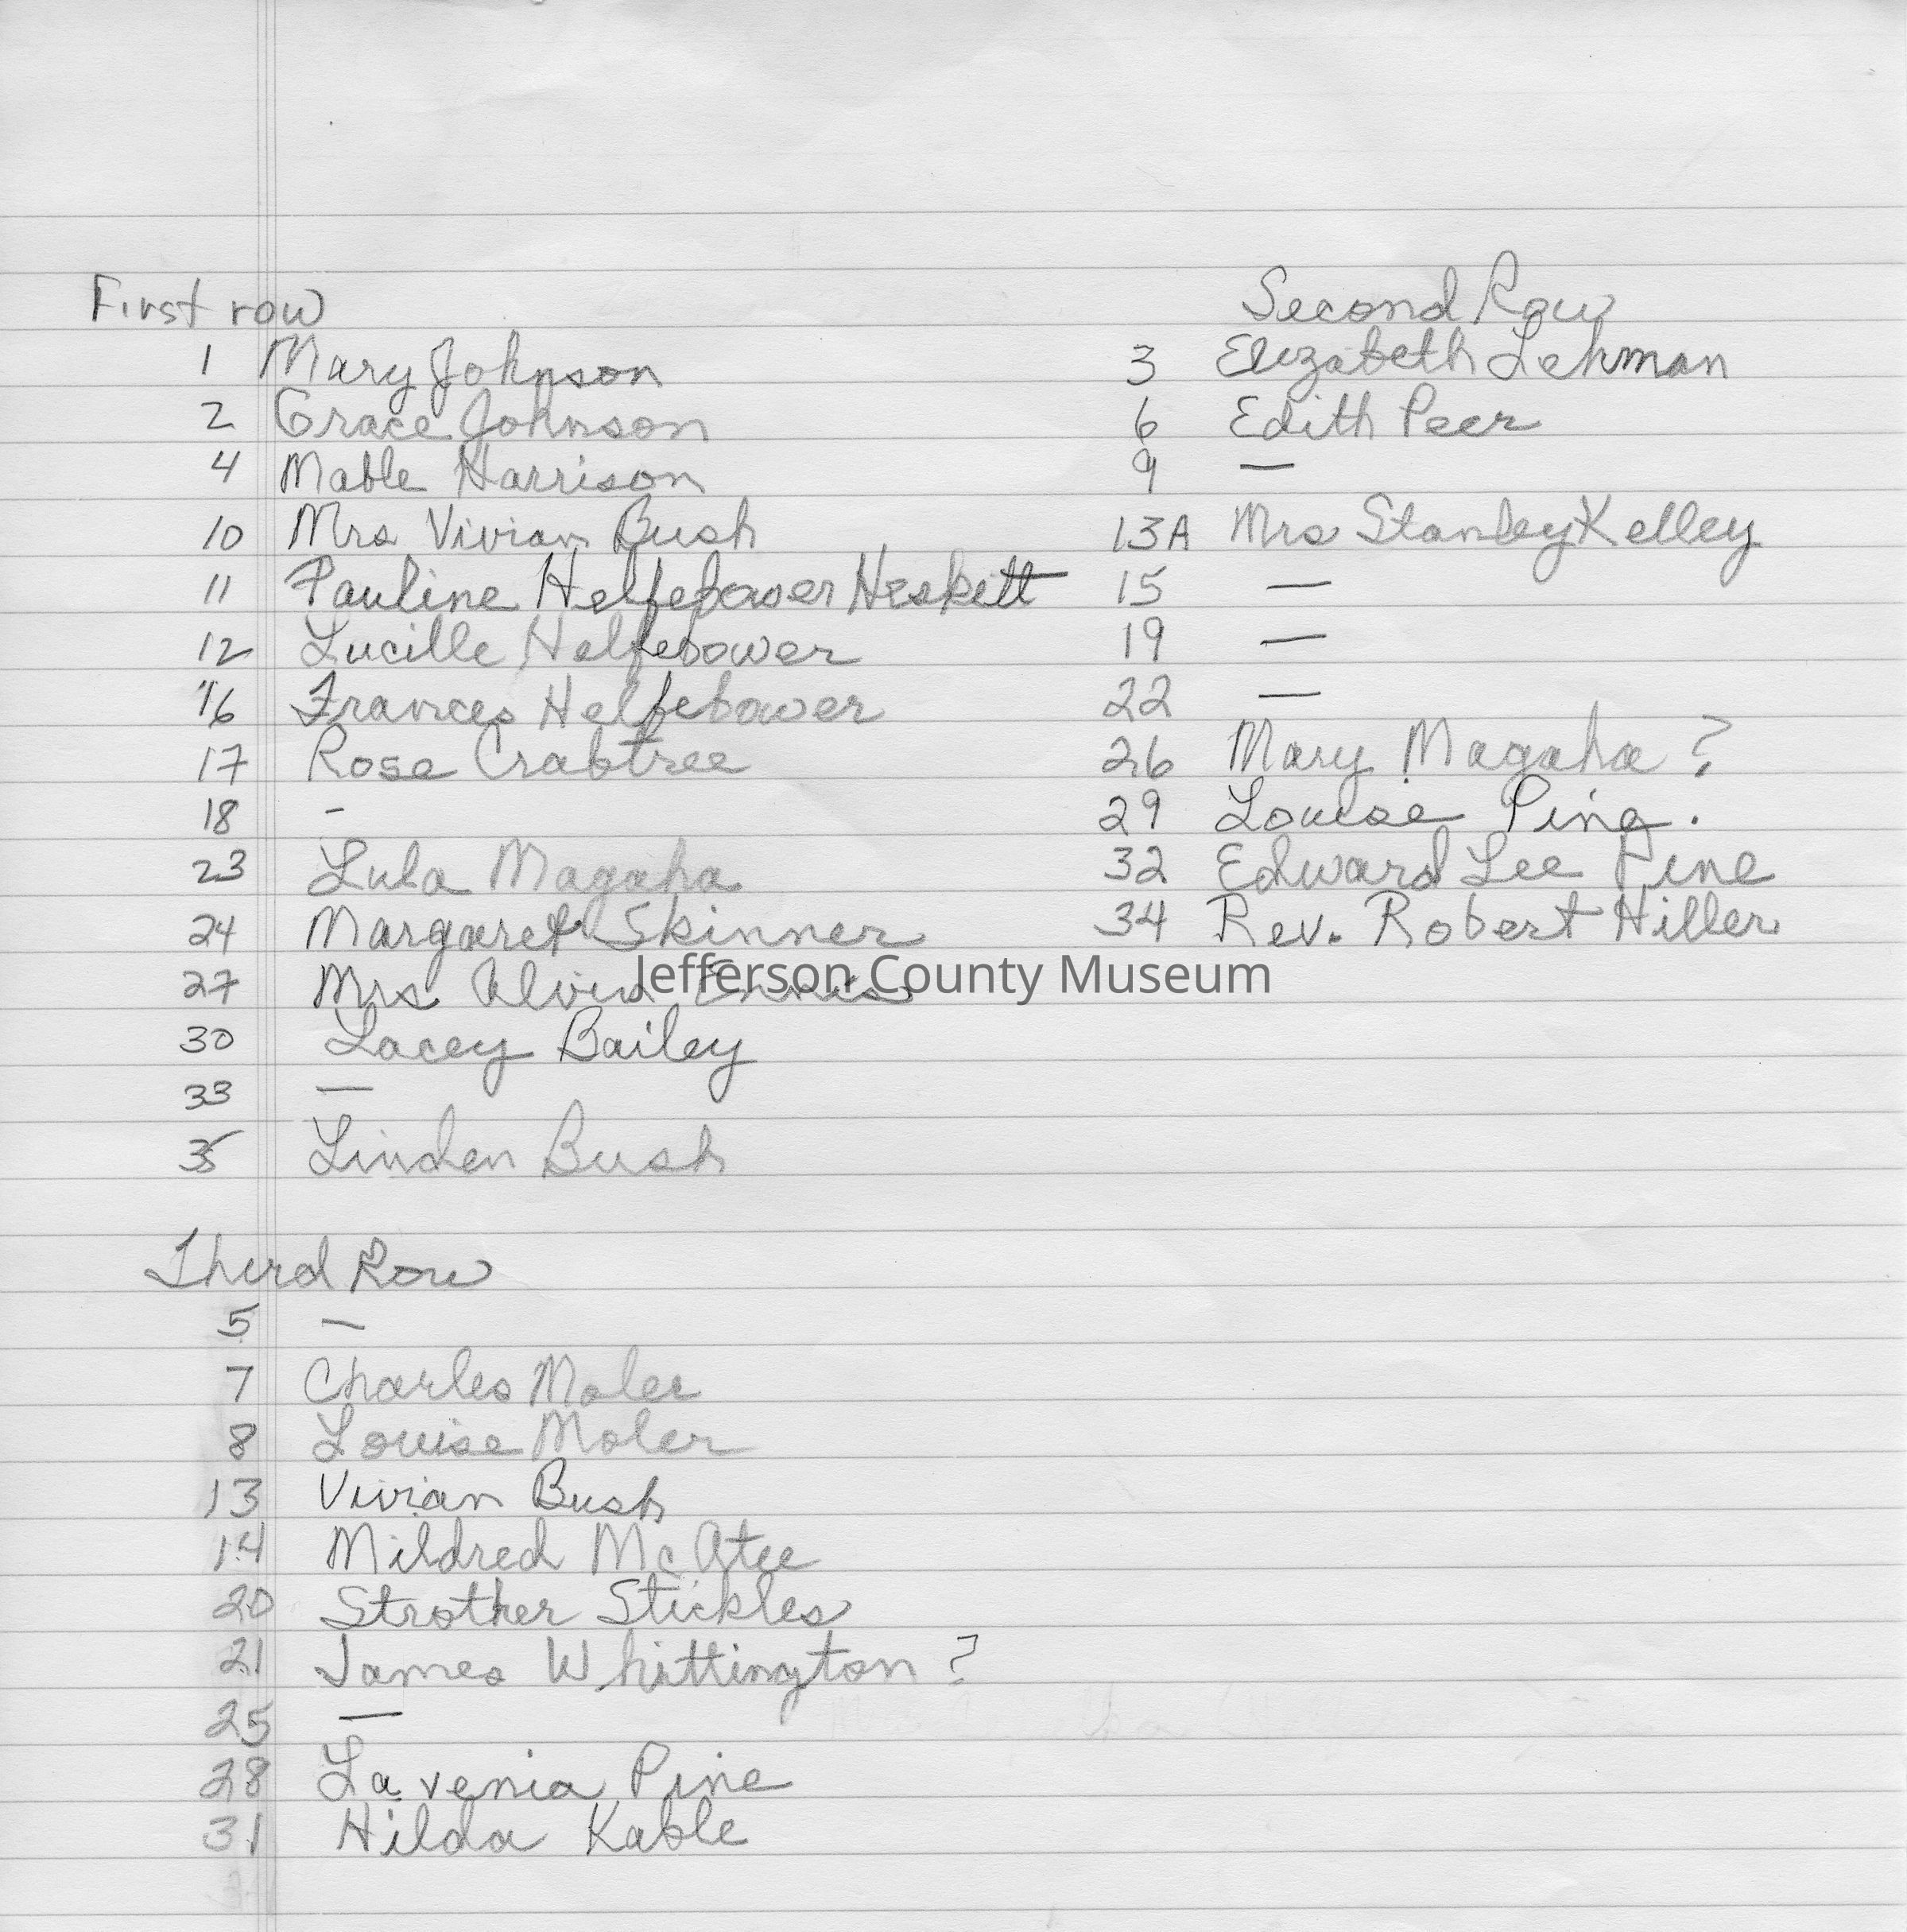 First row
1 Mary Johnson
2 Grace Johnson
4 Mable Harrison
10 Mrs Vivian Bush
11 Pauline Helfebower Heskett
12 Lucille Helfebower
16 Frances Helfebower
17 Rose Crabtree
18 -
23 Lula Magaha
24 Margaret Skinner
27 Mrs Alvin Ennis
30 Lacey Bailey
33 —
35 Linden Bush
Second Row
3 Elizabeth Lehman
6 Edith Peer
9 —
13A Mrs Stanley Kelley
15 —
19 —
22 —
26 Mary Magaha ?
29 Louise Ping.
32 Edward Lee Pine
34 Rev. Robert Hiller
Jefferson County Museum
Third Row
5 —
7 Charles Moler
8 Louise Moler
13 Vivian Bush
14 Mildred McAtee
20 Strother Stickles
21 James Whittington ?
25 —
28 Lavenia Pine
31 Hilda Kable